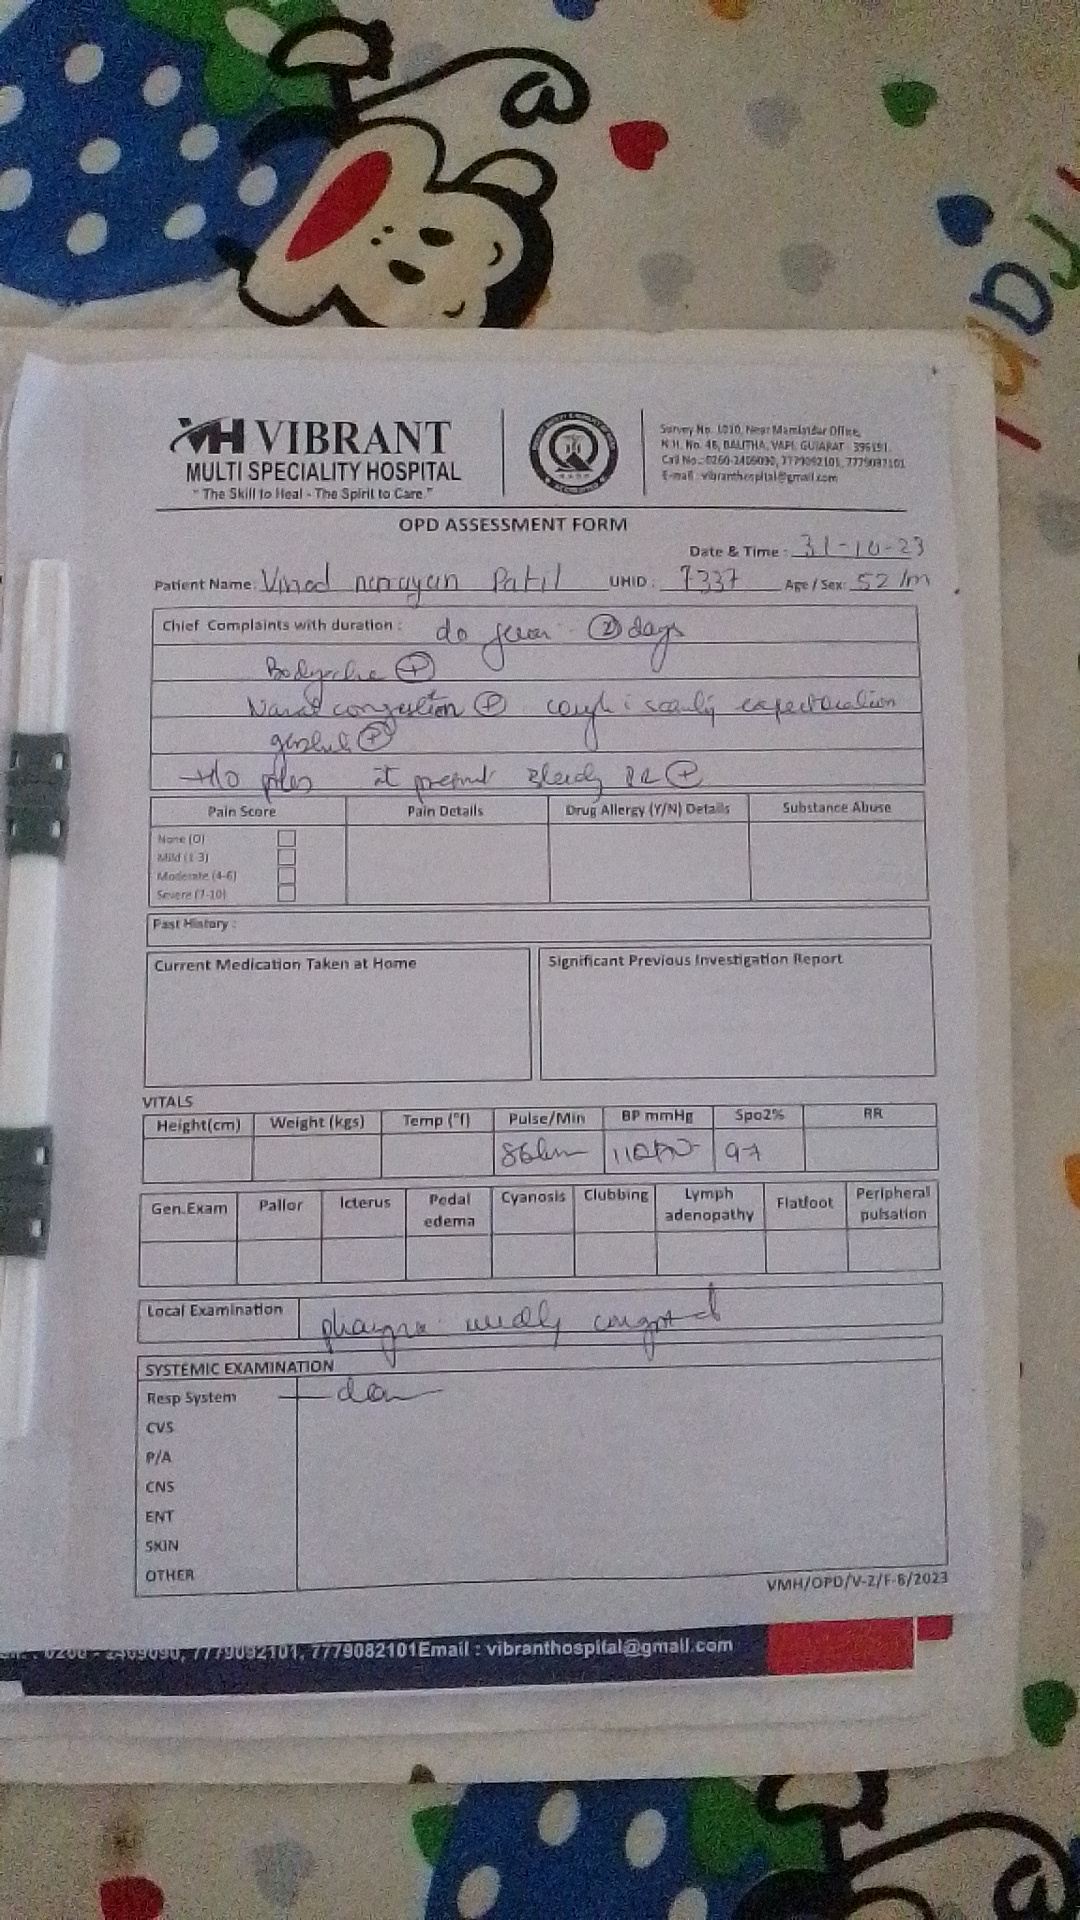 VH VIBRANT
MULTI SPECIALITY HOSPITAL
"The Skill to Heal - The Spirit to Care"
Survey No. 1010, Near Mamlatdar Office,
N.H. No. 48, BALITHA, VAPI, GUJARAT - 396191.
Call No.: 0260-2409090, 7779092101, 7779082101
E-mail : vibranthospital@gmail.com
OPD ASSESSMENT FORM
Date & Time : 31-10-23
Patient Name: Vinod narayan Patil UHID : 7337 Age / Sex: 52/m
Chief Complaints with duration : 2 days
Bodyache +
Nasal congestion + cough expectoration
+
piles at present Bleeding +
Pain Score Pain Details Drug Allergy (Y/N) Details Substance Abuse
None (0)
Mild (1-3)
Moderate (4-6)
Severe (7-10)
Past History :
Current Medication Taken at Home Significant Previous Investigation Report
VITALS
Height(cm) Weight (kgs) Temp (°f) Pulse/Min BP mmHg Spo2% RR
97
Gen.Exam Pallor Icterus Pedal edema Cyanosis Clubbing Lymph adenopathy Flatfoot Peripheral pulsation
Local Examination
SYSTEMIC EXAMINATION
Resp System
CVS
P/A
CNS
ENT
SKIN
OTHER
VMH/OPD/V-2/F-8/2023
: 0260 - 2409090, 7779092101, 7779082101Email : vibranthospital@gmail.com